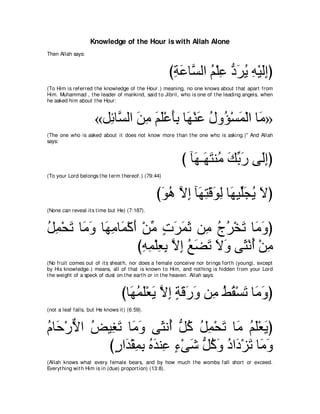 Knowledge of the Hour is with Allah Alone
Then Allah says:
(إِلَيْهِ يُرَدُّ عِلْمُ السَّاعَةِ)
(To Him is referred the knowledge of the Hour.) meaning, no one knows about that apart from
Him. Muhammad , the leader of mankind, said to Jibril, who is one of the leading angels, when
he asked him about the Hour:
«مَا الْمَسْؤُولُ عَنْهَا بِأَعْلَمَ مِنَ السَّائِلِ»
(The one who is asked about it does not know more than the one who is asking.)" And Allah
says:
(إِلَى رَبِّكَ مُنتَهَـهَآ )
(To your Lord belongs the term thereof.) (79:44)
(لاَ يُجَلِّيهَا لِوَقْتِهَآ إِلاَّ هُوَ)
(None can reveal its time but He) (7:187).
(وَمَا تَخْرُجُ مِن ثَمَرَتٍ مِّنْ أَكْمَامِهَا وَمَا تَحْمِلُ
مِنْ أُنْثَى وَلاَ تَضَعُ إِلاَّ بِعِلْمِهِ)
(No fruit comes out of its sheath, nor does a female conceive nor brings forth (young), except
by His knowledge.) means, all of that is known to Him, and nothing is hidden from your Lord
the weight of a speck of dust on the earth or in the heaven. Allah says:
(وَمَا تَسْقُطُ مِن وَرَقَةٍ إِلاَّ يَعْلَمُهَا)
(not a leaf falls, but He knows it) (6:59).
(يَعْلَمُ مَا تَحْمِلُ كُلُّ أُنثَى وَمَا تَغِيضُ الأَرْحَامُ
وَمَا تَزْدَادُ وَكُلُّ شَىْءٍ عِندَهُ بِمِقْدَارٍ)
(Allah knows what every female bears, and by how much the wombs fall short or exceed.
Everything with Him is in (due) proportion) (13:8).